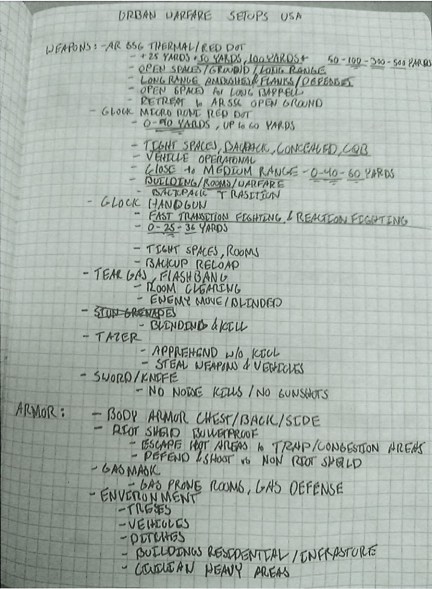 URBAN WARFARE SETUPS USA
WEAPONS: - AR 556 THERMAL/RED DOT
- +25 YARDS + 50 YARDS, 100 YARDS + 50-100-300-500 YARDS
- OPEN SPACES/GROUND/LONG RANGE
- LONG RANGE AMBUSHES/FLANKS/DEFENSES
- OPEN SPACES FOR LONG BARRELL
- RETREAT to AR556 OPEN GROUND
- GLOCK MICRO RONI RED DOT
- 0-40 YARDS, UP to 60 YARDS
- TIGHT SPACES, BACKPACK, CONCEALED, CQB
- VEHICLE OPERATIONAL
- CLOSE to MEDIUM RANGE - 0-40-60 YARDS
- BUILDING/ROOMS/WARFARE
- BACKPACK TRASITION
- GLOCK HANDGUN
- FAST TRANSITION FIGHTING & REACTION FIGHTING
- 0-25-36 YARDS
- TIGHT SPACES, ROOMS
- BACKUP RELOAD
- TEAR GAS, FLASHBANG
- ROOM CLEARING
- ENEMY MOVE/BLINDED
- STUN GRENADES
- BLINDING & KILL
- TAZER
- APPREHEND W/O KILL
- STEAL WEAPONS & VEHICLES
- SWORD/KNIFE
- NO NOISE KILLS/NO GUNSHOTS
ARMOR: - BODY ARMOR CHEST/BACK/SIDE
- RIOT SHEILD BULLETPROOF
- ESCAPE HOT AREAS to TRAP/CONGESTION AREAS
- DEFEND & SHOOT vs NON RIOT SHEILD
- GAS MASK
- GAS PRONE ROOMS, GAS DEFENSE
- ENVIRONMENT
- TREES
- VEHICLES
- DITCHES
- BUILDINGS RESIDENTIAL/INFRASTURE
- CIVILIAN HEAVY AREAS